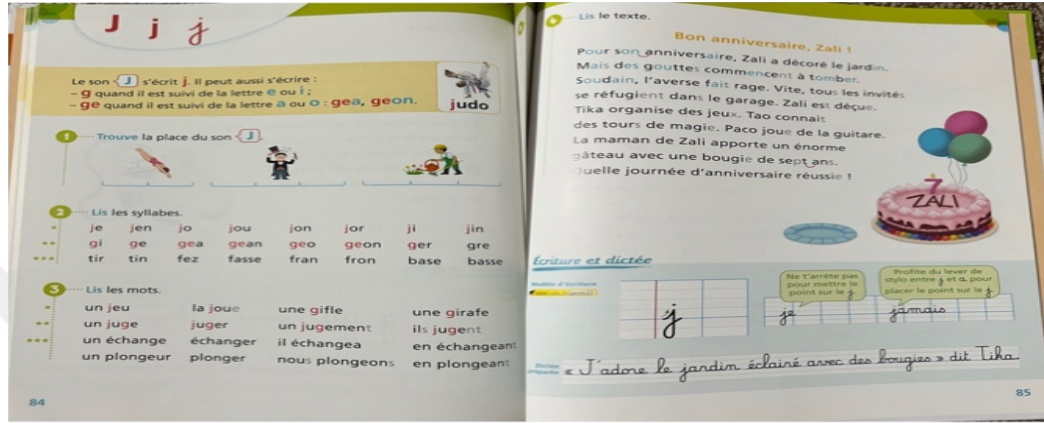 J j j
Le son J s'écrit j. Il peut aussi s'écrire :
– g quand il est suivi de la lettre e ou i ;
– ge quand il est suivi de la lettre a ou o : gea, geon.
judo
1 Trouve la place du son J.
2 Lis les syllabes.
je jen jo jou jon jor ji jin
gi ge gea gean geo geon ger gre
tir tin fez fasse fran fron base basse
3 Lis les mots.
un jeu la joue une gifle une girafe
un juge juger un jugement ils jugent
un échange échanger il échangea en échangeant
un plongeur plonger nous plongeons en plongeant
84
Lis le texte.
Bon anniversaire, Zali !
Pour son anniversaire, Zali a décoré le jardin.
Mais des gouttes commencent à tomber.
Soudain, l'averse fait rage. Vite, tous les invités
se réfugient dans le garage. Zali est déçue.
Tika organise des jeux. Tao connait
des tours de magie. Paco joue de la guitare.
La maman de Zali apporte un énorme
gâteau avec une bougie de sept ans.
Quelle journée d'anniversaire réussie !
7
ZALI
Écriture et dictée
Modèle d'écriture
j
Ne t'arrête pas
pour mettre le
point sur le j.
je
Profite du lever de
stylo entre j et a pour
placer le point sur le j.
jamais
Dictée
préparée
« J'adore le jardin éclairé avec des bougies » dit Tika.
85